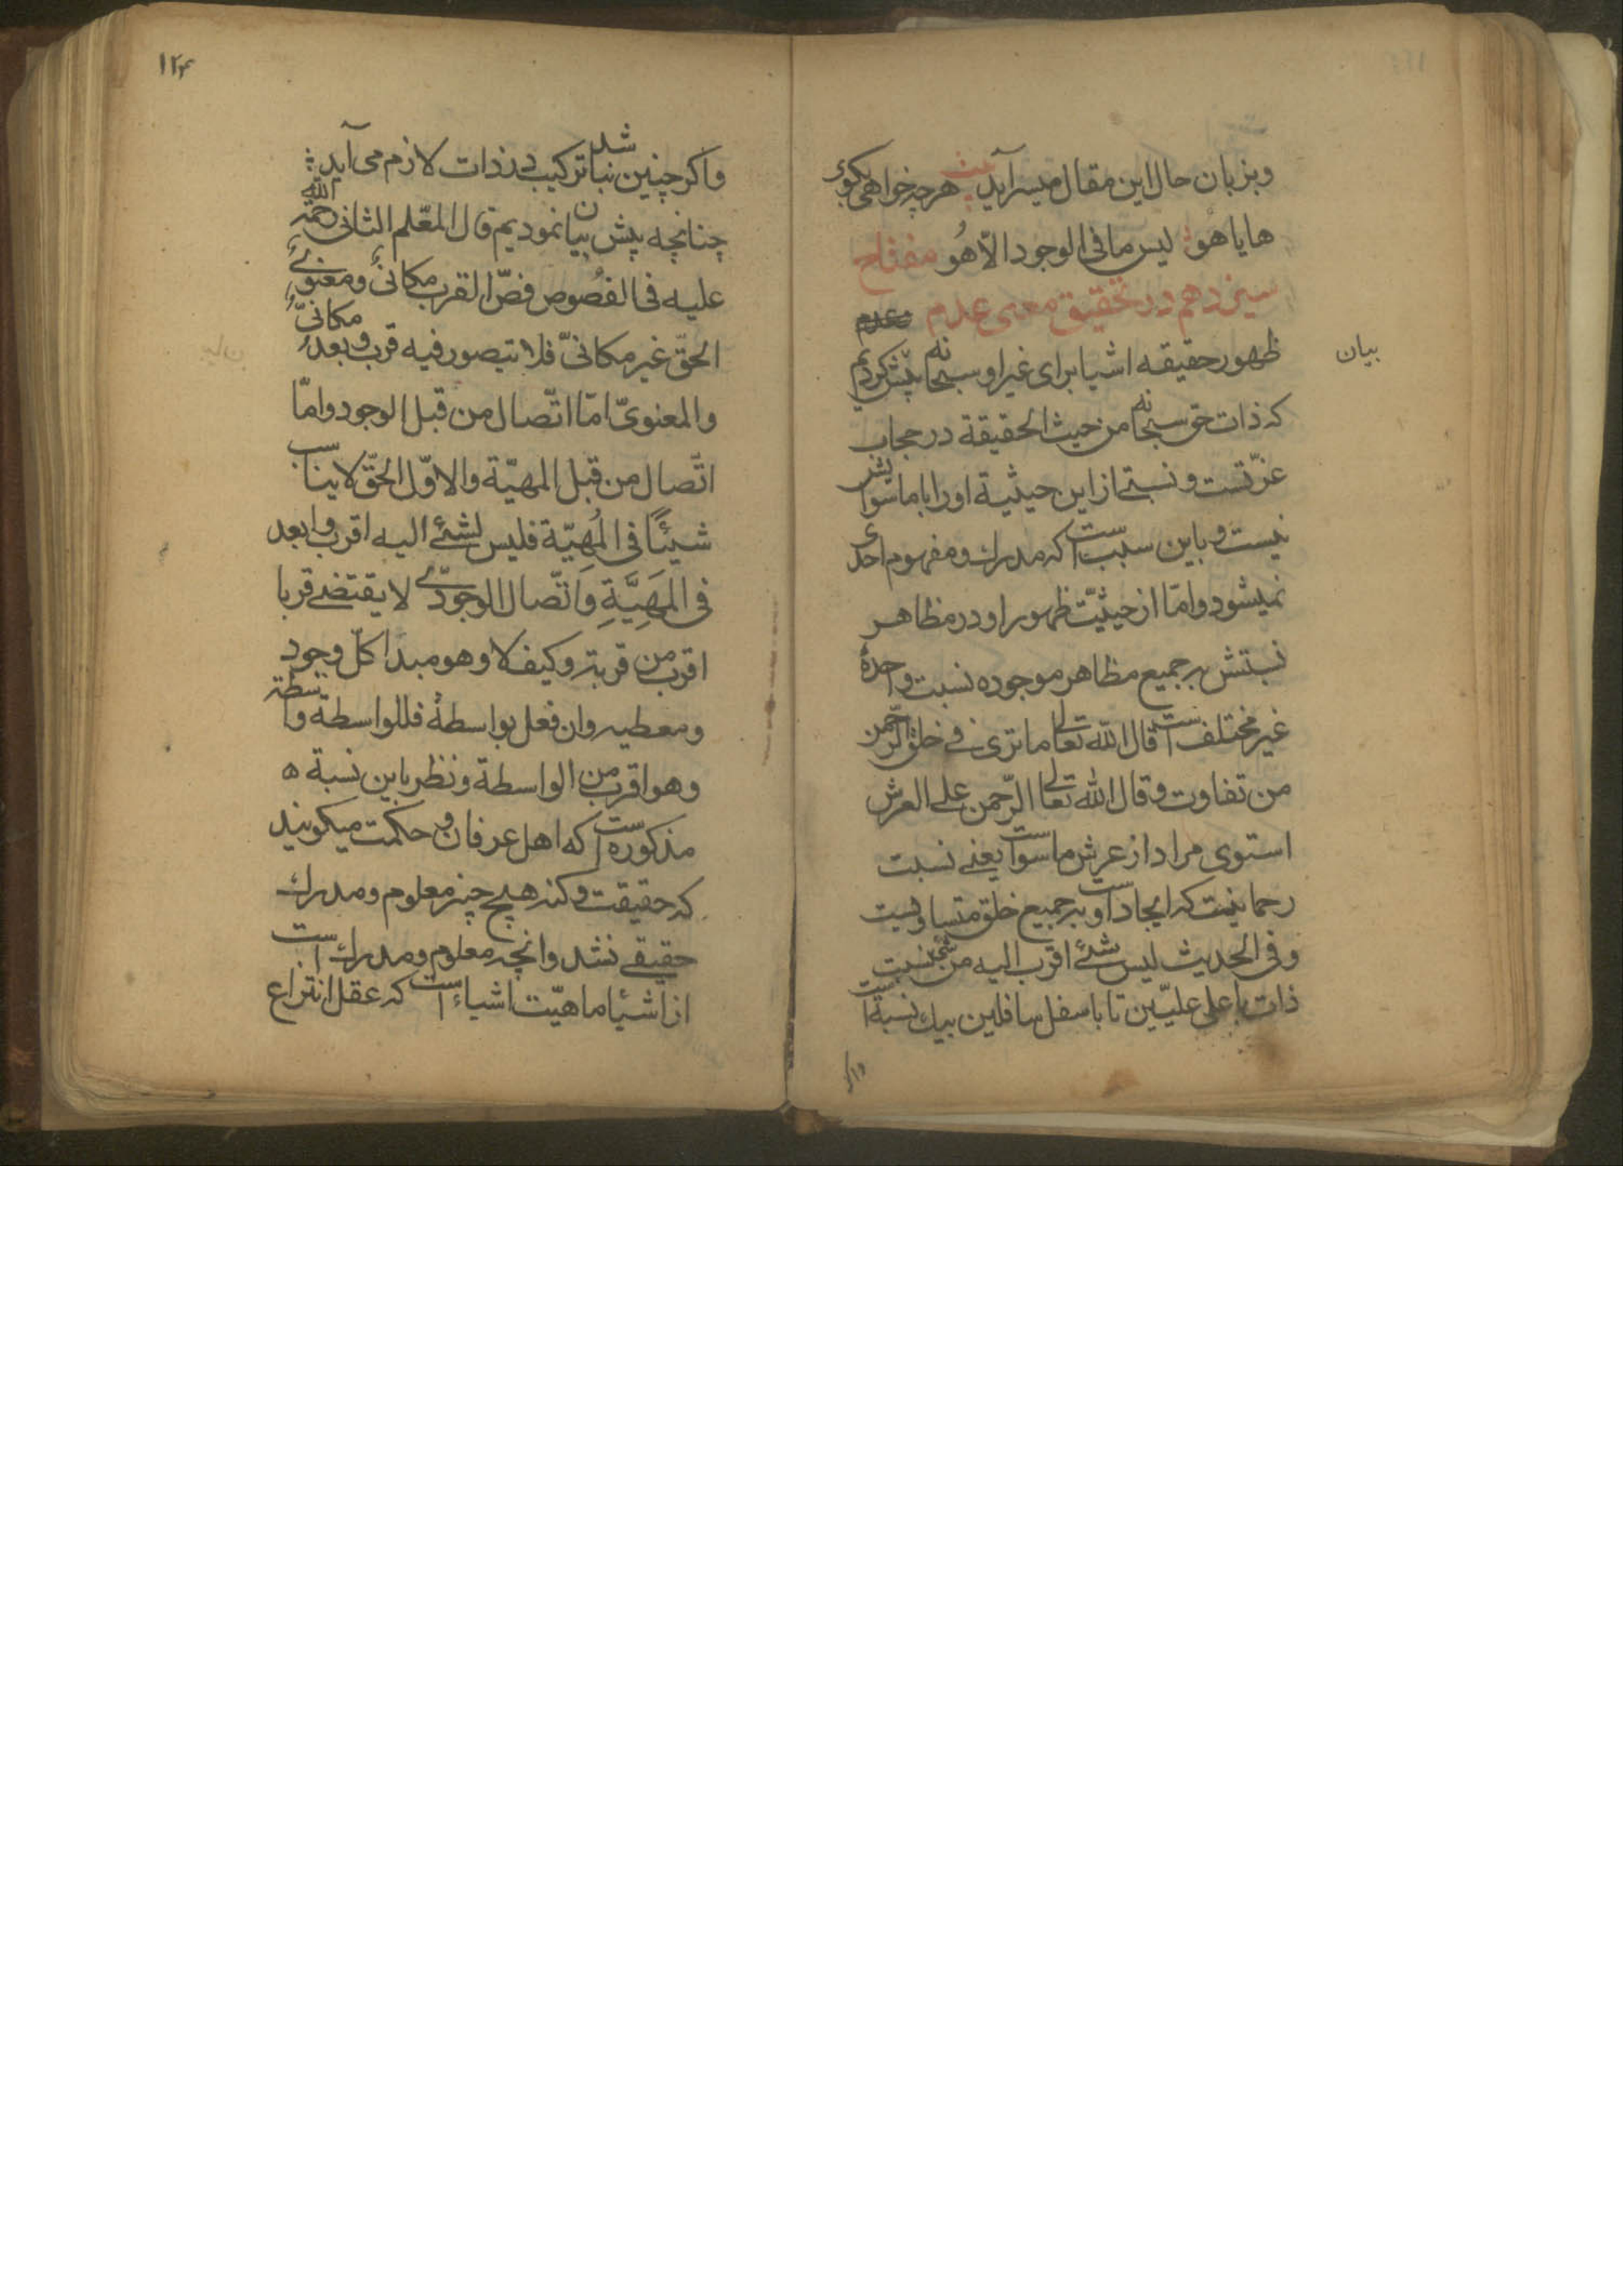 وبزبان حال این مقال میسرآید بیت هرچه خواهی بکوی
هایاهو لیس مافی الوجود الّا هُو مفتاح
سیزدهم در تحقیق معنی عدم
ظهور حقیقه اشیا برای غیر او سبحانه پیش کردیم
بیان
که ذات حق سبحانه من حیث الحقیقة در حجاب
عزّتست و نسبتی از این حیثیة اورا باماسواش
نیست و باین سببست که مدرك و مفهوم احدی
نمیشود وامّا از حیثیّت ظهور او در مظاهر
نسبتش بر جمیع مظاهر موجوده نسبت واحدهٔ
غیر مختلف است قال الله تعالی ماتری فی خلق الرحمن
من تفاوت وقال الله تعالی الرّحمن علی العرش
استوی مراد از عرش ماسواست یعنی نسبت
رحمانیت که ایجاد است او بر جمیع خلق متساویست
وفی الحدیث لیس شئ اقرب الیه من شئ نسبت
ذات باعلی علیّین تا باسفل سافلین بیك نسبة است
۱۲۴
واکر چنین نباشد ترکیب در ذات لازم می آید
چنانچه پیش بیان نمودیم قال المعّلم الثانی رحمة الله
علیه فی الفُصوص فصّ القرب مکانیٌ ومعنویٌ
الحقّ غیر مکانیّ فلا یتصور فیه قرب و بعدٌ مکانیٌّ
والمعنویّ امّا اتّصال من قبل الوجود وامّا
اتّصال من قبل المهیّة والاوّل الحقّ لایناسب
شیئًا فی المُهیّة فلیس لشئ الیه اقرب وابعد
فی المَهِیَّةِ وَاتّصال الوجودّی لایقتضی قربا
اقرب من قربه وکیف لا وهو مبدا کلّ وجود
ومعطیه وان فعل بواسطةٍ فللواسطة واسطة
وهو اقرب من الواسطة ونظر باین نسبة ه
مذکوره است که اهل عرفان و حکمت میکویند
که حقیقت وکنه هیچ چیز معلوم ومدرك
حقیقی نشد وانچه معلوم ومدرك است
از اشیا ماهیّت اشیاء است که عقل انتزاع